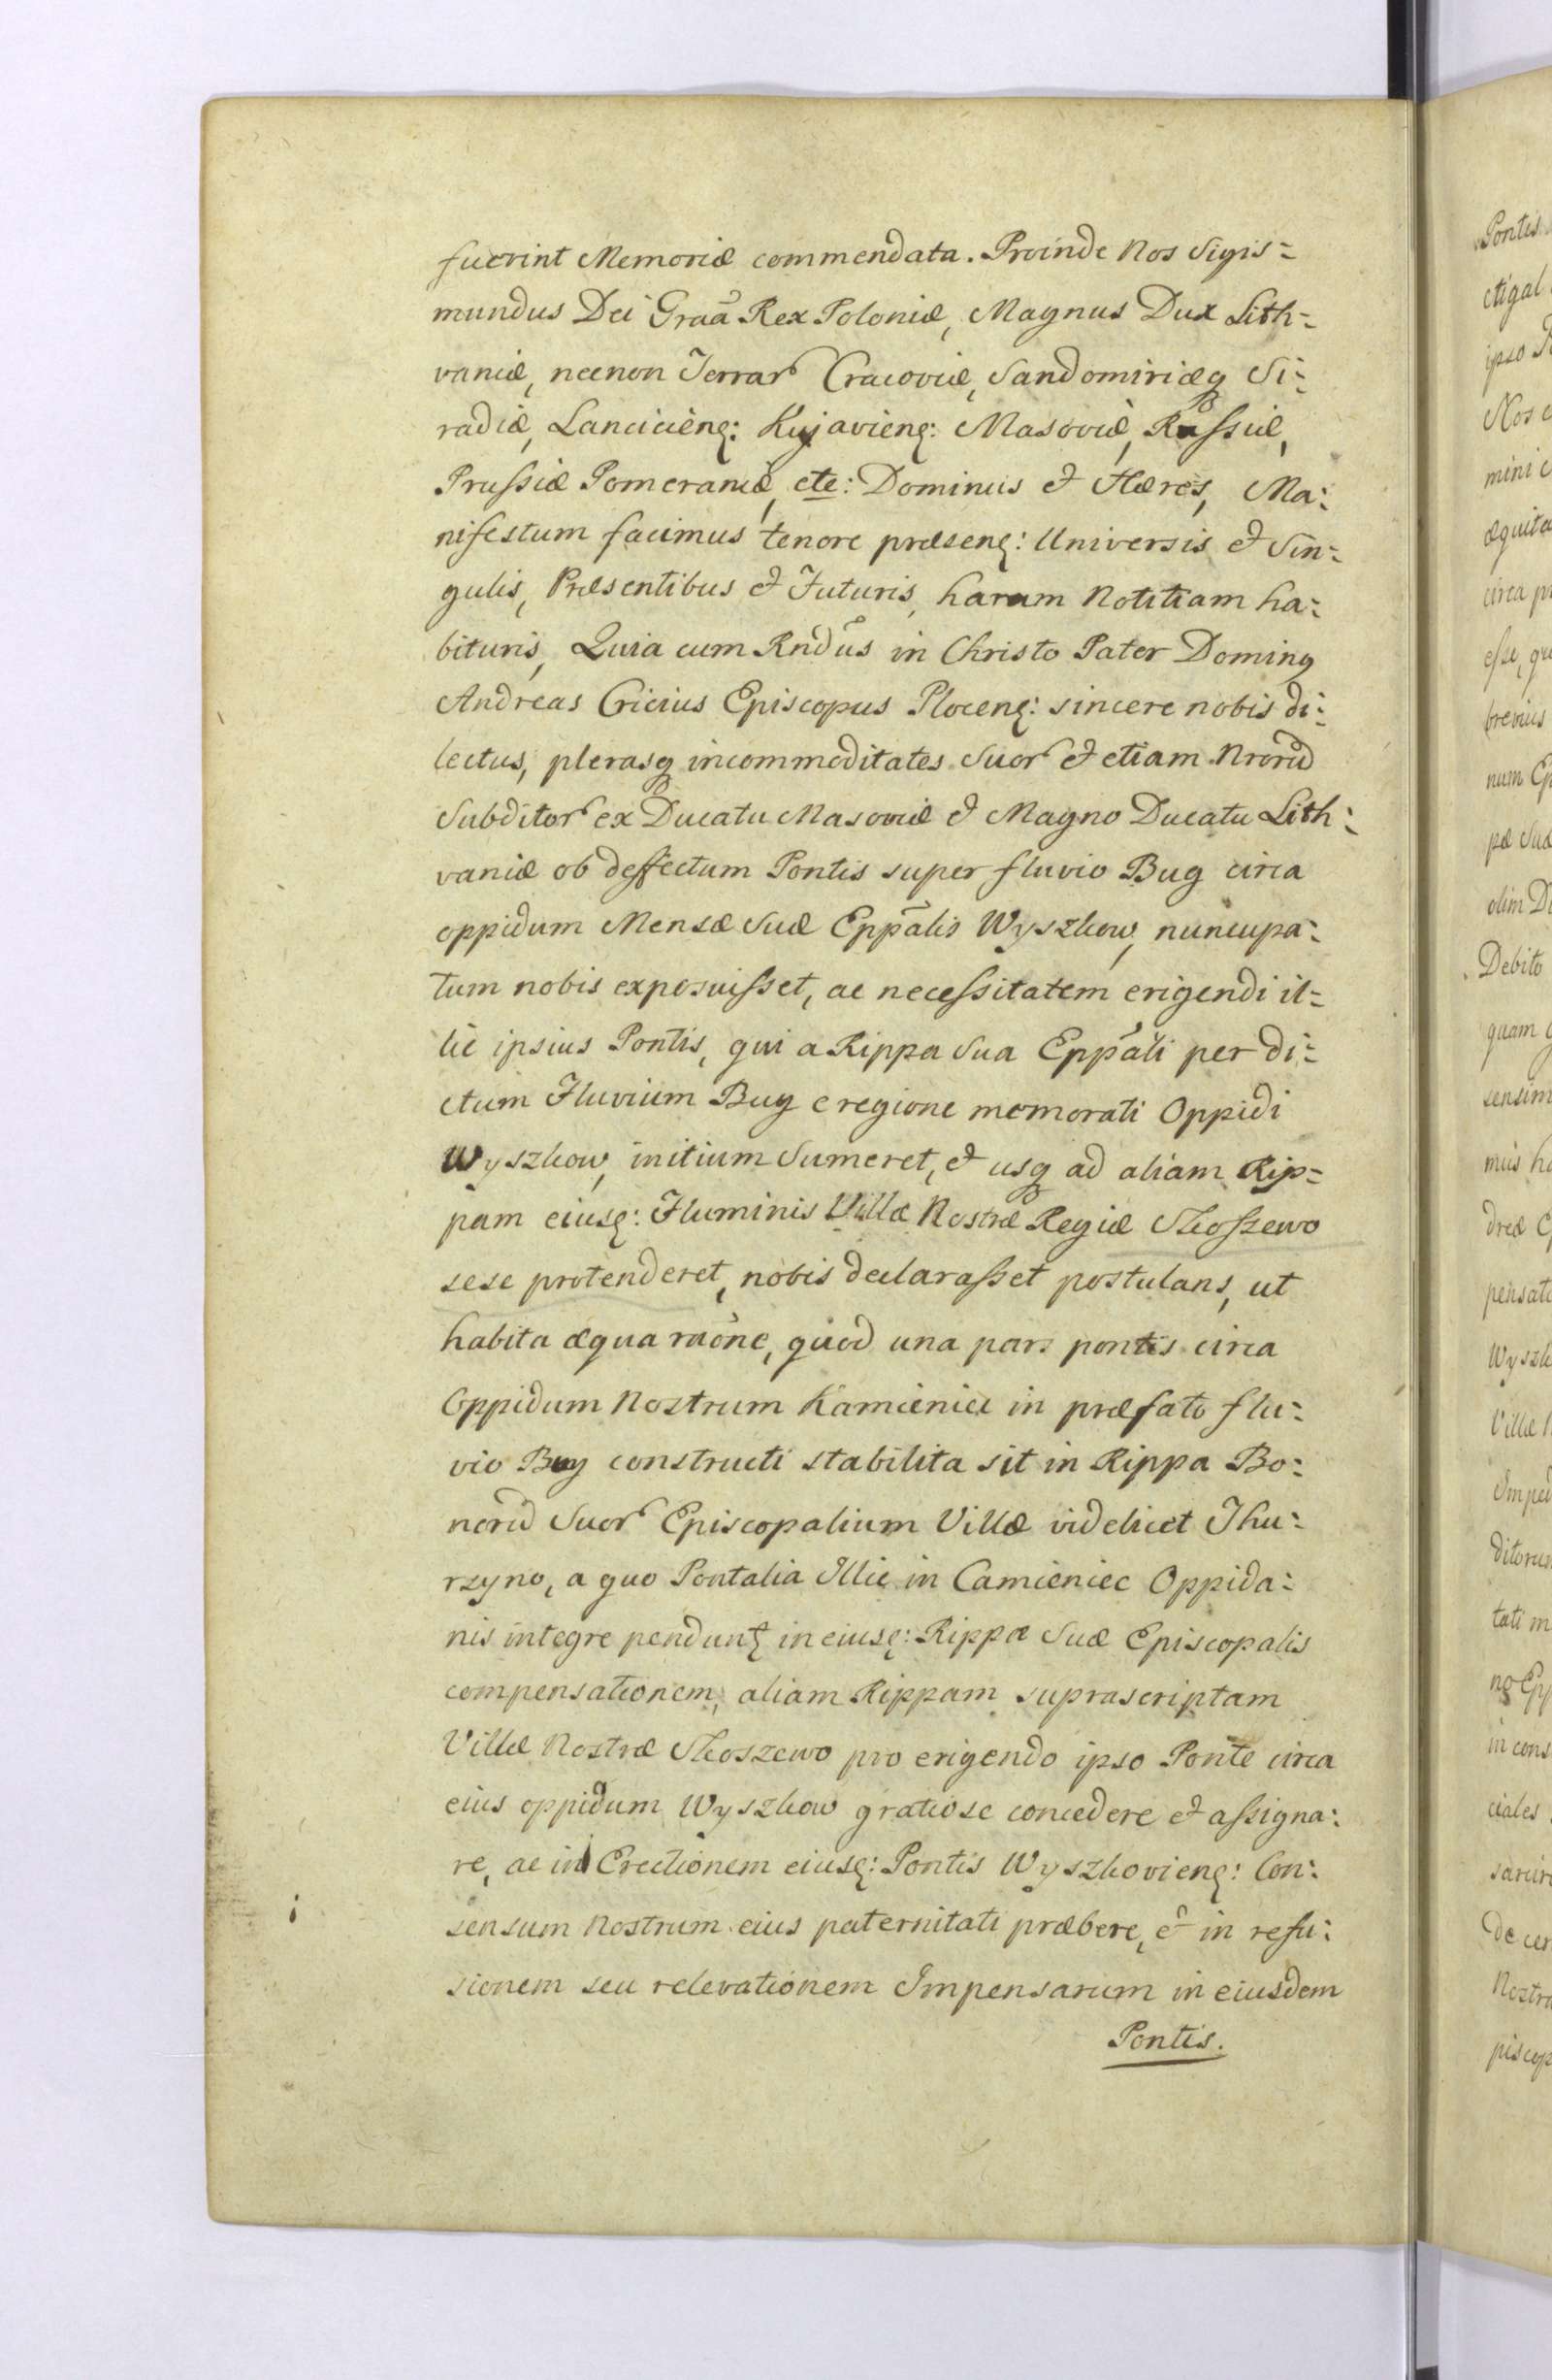 fuerint Memoriæ commendata. Proinde Nos Sigis=
mundus Dei Graã Rex Poloniæ, Magnus Dux Lith=
vaniæ, necnon Terrar Cracoviæ, Sandomiriæq Si=
radiæ, Lanciciens: Kujaviens: Masoviæ, Russiæ,
Prussiæ Pomeraniæ, etc: Dominus et Hæres, Ma=
nifestum facimus tenore præsens: Universis et Sin=
gulis, Præsentibus et Futuris, harum Notitiam ha=
bituris, Quia cum Rndus in Christo Pater Dominus
Andreas Cricius Episcopus Plocens: sincere nobis di=
lectus, plerasq incommoditates Suor et etiam Nrorũ
Subditor ex Ducatu Masoviæ et Magno Ducatu Lith=
vaniæ ob deffectum Pontis super fluvio Bug circa
oppidum Mensæ Suæ Eppãlis Wyszkow, nuncupa=
tum nobis exposuisset, ac necessitatem erigendi il=
lic ipsius Pontis, qui a Rippa Sua Eppãli per di=
ctum Fluvium Bug e regione memorati Oppidi
Wyszkow, initium Sumeret, et usq ad aliam Rip=
pam eiusd: Fluminis Villæ Nostræ Regiæ Skoszewo
sese protenderet, nobis declarasset postulans, ut
habita æqua raone, quod una pars pontis circa
Oppidum Nostrum Kamieniec in præfato flu=
vio Bug constructi stabilita sit in Rippa Bo=
norũ Suor Episcopalium Villæ videlicet Thu=
rzyno, a quo Pontalia Illic in Camieniec Oppida=
nis integre pendunt in eiusd: Rippæ Suæ Episcopalis
compensationem, aliam Rippam suprascriptam
Villæ Nostræ Skoszewo pro erigendo ipso Ponte circa
eius oppidum Wyszkow gratiose concedere et assigna=
re, ac in Erectionem eiusd: Pontis Wyszkoviens: Con=
sensum Nostrum eius paternitati præbere, et in refu=
sionem seu relevationem Impensarum in eiusdem
Pontis.